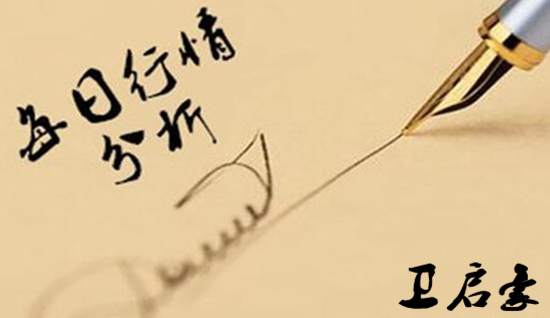 每日行情
分析
卫启豪